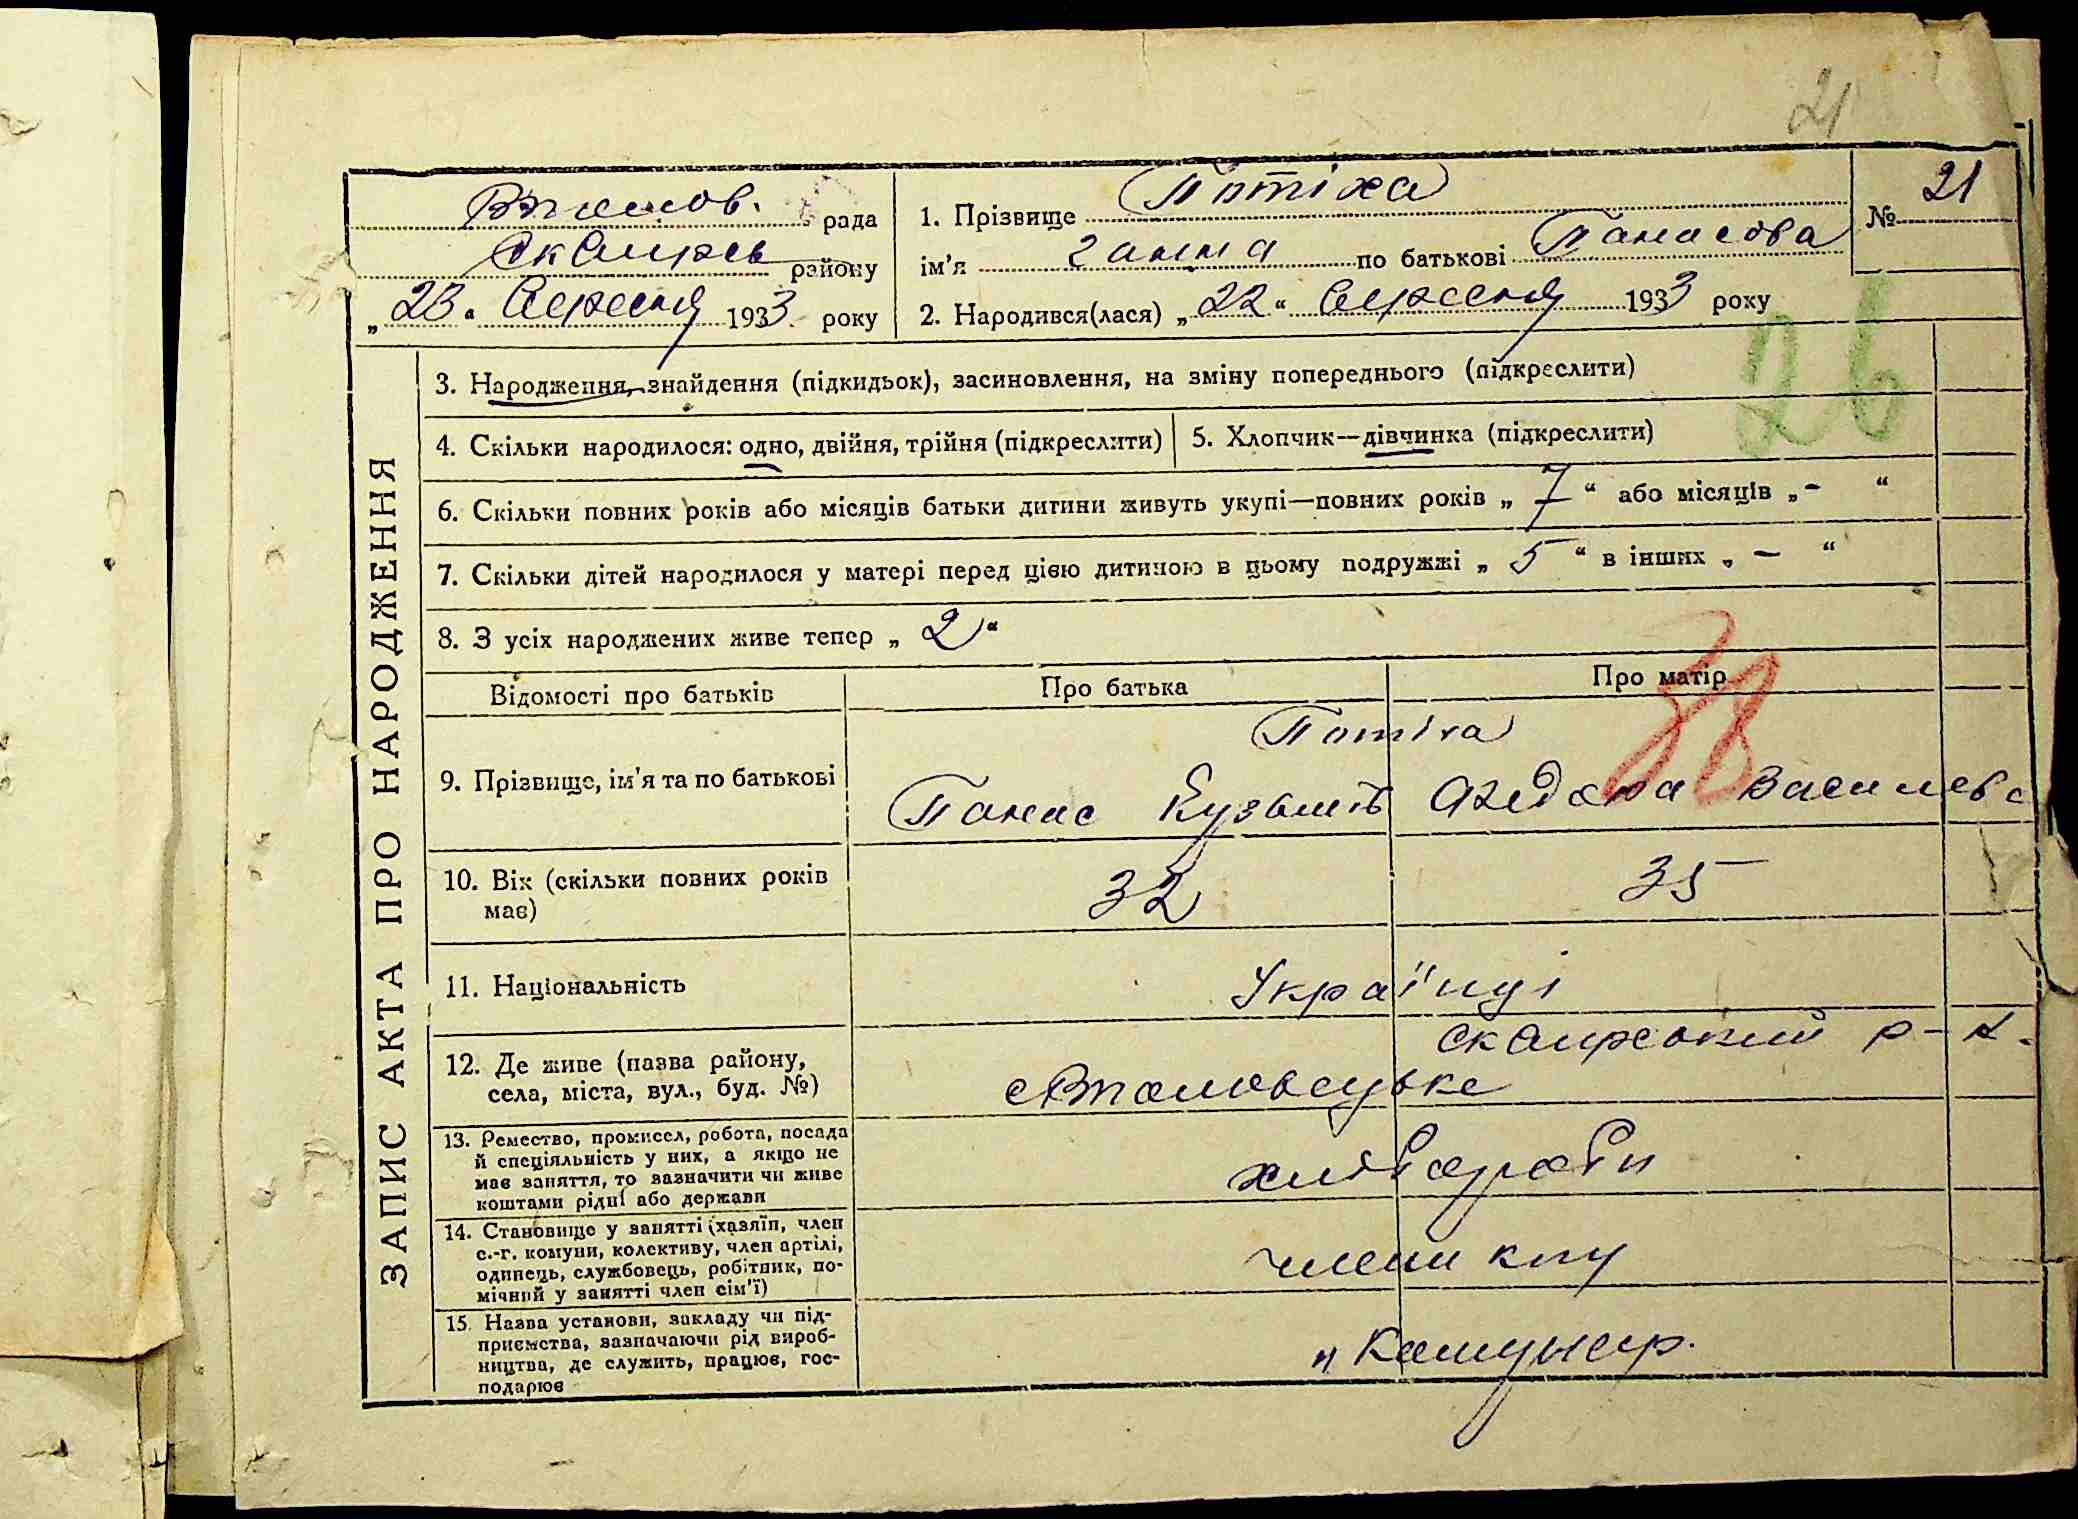 21
рада
Сквирськ району
„23“ Вересня 1933 року
1. Прізвище Потіха
ім'я Ганна по батькові Панасова
2. Народився(лася) „22“ Вересня 1933 року
№ 21
26
ЗАПИС АКТА ПРО НАРОДЖЕННЯ
3. Народження, знайдення (підкидьок), засиновлення, на зміну попереднього (підкреслити)
4. Скільки народилося: одно, двійня, трійня (підкреслити)
5. Хлопчик—дівчинка (підкреслити)
6. Скільки повних років або місяців батьки дитини живуть укупі—повних років „7“ або місяців „-“
7. Скільки дітей народилося у матері перед цією дитиною в цьому подружжі „5“ в інших „—“
8. З усіх народжених живе тепер „2“
Відомості про батьків
Про батька
Про матір
38
Потіха
9. Прізвище, ім'я та по батькові
Панас Кузьмів
Василева
10. Вік (скільки повних років
має)
32
35
11. Національність
Українці
12. Де живе (назва району,
села, міста, вул., буд. №)
Сквирський р-н.
13. Ремество, промисел, робота, посада
й спеціяльність у них, а якщо не
має заняття, то зазначити чи живе
коштами рідні або держави
хлібороби
14. Становище у занятті (хазяїн, член
с.-г. комуни, колективу, член артілі,
одинець, службовець, робітник, по-
мічний у занятті член сім'ї)
члени
15. Назва установи, закладу чи під-
приємства, зазначаючи рід вироб-
ництва, де служить, працює, гос-
подарює
„Комунар.